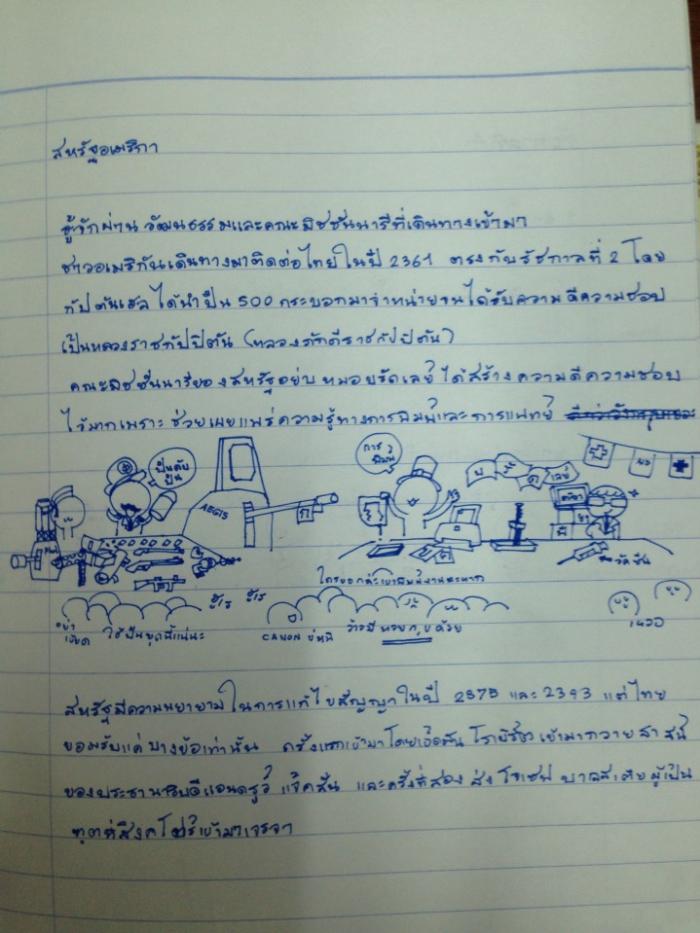 สหรัฐอเมริกา
รู้จักผ่านวัฒนธรรมและคณะมิชชั่นนารีที่เดินทางเข้ามา
ชาวอเมริกันเดินทางมาติดต่อไทยในปี 2361 ตรงกับรัชกาลที่ 2 โดย
กัปตันเฮล ได้นำปืน 500 กระบอกมาจำหน่ายจนได้รับความดีความชอบ
เป็นหลวงราชกัปปิตัน (หลวงภักดีราชกัปปิตัน)
คณะมิชชั่นนารีของสหรัฐอย่าง หมอบรัดเลย์ ได้สร้างความดีความชอบ
ไว้มากเพราะช่วยเผยแพร่ความรู้ทางการพิมพ์และการแพทย์
ปืนคับ
ปืน
AEGIS
การ
พิมพ์
บ รั ด เลย์
วัคซีน
ใครบอก
อย่า
CANON
ด้วย
สหรัฐมีความพยายามในการแก้ไขสัญญาในปี 2375 และ 2393 แต่ไทย
ยอมรับแค่บางข้อเท่านั้น ครั้งแรกเข้ามาโดยเอ็ดมัน โรเบิร์ต เข้ามาถวายสาส์น
ของประธานาธิบดีแอนดรูว์ แจ็คสัน และครั้งที่สอง ส่ง โจเซฟ บาลเลสเตีย ผู้เป็น
ทูตที่สิงคโปร์เข้ามาเจรจา